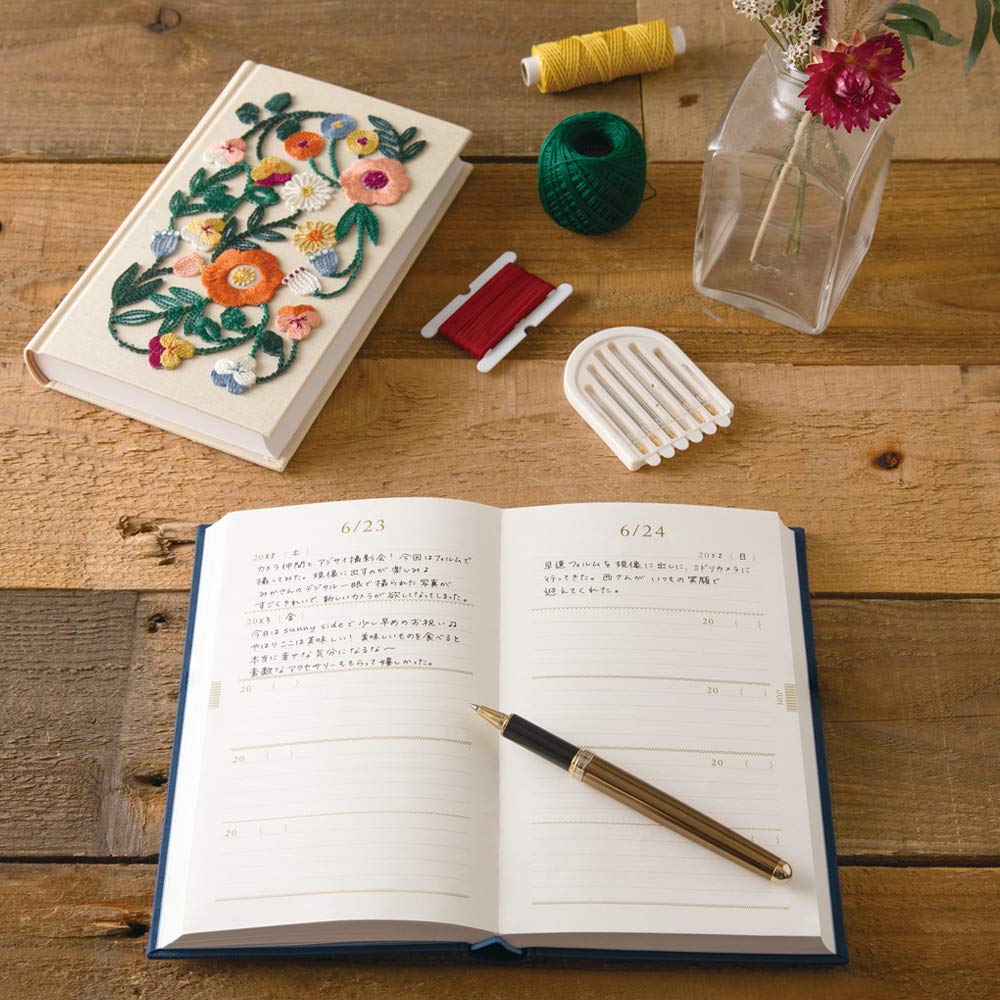 6/23
20×2 (土)
カメラ仲間とアジサイ撮影会！今回はフィルムで
撮ってみた。現像に出すのが楽しみ♪
みかさんのデジタル一眼で撮られた写真が
すごくきれいで、新しいカメラが欲しくなってしまった。
20×3 (金)
今日はsunny sideで少し早めのお祝い♫
やはりここは美味しい！美味しいものを食べると
本当に幸せな気分になるな〜
素敵なアクセサリーももらって嬉しかった。
20 ( )
20 ( )
20 ( )
6/24
20×2 (日)
早速フィルムを現像に出しに、ミドリカメラに
行ってきた。西さんがいつもの笑顔で
迎えてくれた。
20 ( )
20 ( )
20 ( )
( )
JUN